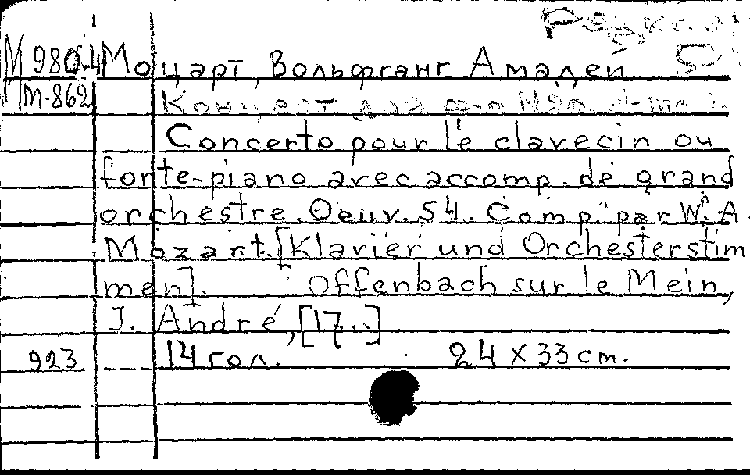 М 980-4 Моцарт, Вольфганг Амадей
М-862 Концерт для ф-п
Concerto pour le clavecin ou
forte-piano avec accomp. de grand
orchestre. Oeuv. 54. Comp. par W. A.
Mozart. [Klavier und Orchesterstim
men]. Offenbach sur le Mein,
J. André, [17..]
923 14 гол. 24 x 33 cm.